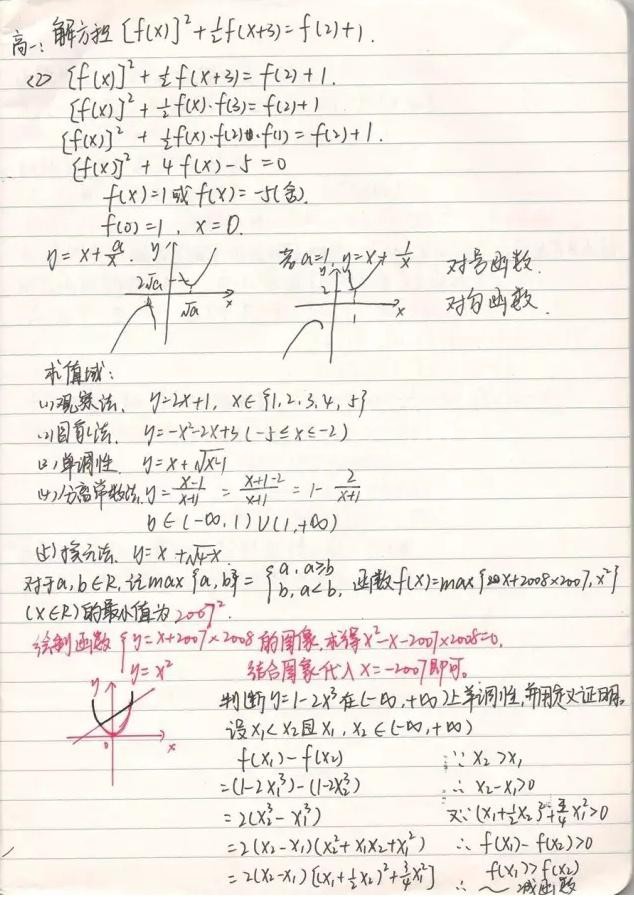 高一:解方程 [f(x)]²+½f(x+3)=f(2)+1.
<2> [f(x)]²+½f(x+3)=f(2)+1.
[f(x)]²+½f(x)·f(3)=f(2)+1
[f(x)]²+½f(x)·f(2)·f(1)=f(2)+1.
[f(x)]²+4f(x)-5=0
f(x)=1或f(x)=-5(舍).
f(0)=1, x=0.
y=x+a/x. y 2√a √a x
若a=1, y=x+1/x y 2 1 x
对号函数.
对勾函数.
求值域:
(1)观察法. y=2x+1, x∈{1,2,3,4,5}
(2)图象法. y=-x²-2x+3(-5≤x≤-2)
(3)单调性. y=x+√x-1
(4)分离常数法. y=x-1/x+1=x+1-2/x+1=1-2/x+1
y∈(-∞,1)∪(1,+∞)
(5)换元法. y=x+√4-x
对于a,b∈R,记max{a,b}={a,a≥b b,a<b, 函数f(x)=max{x+2008×2007,x²}
(x∈R)的最小值为2007².
绘制函数{y=x+2007×2008的图像,求得x²-x-2007×2008=0,
y=x² 结合图象代入x=-2007即可。
y 0 x
判断y=1-2x³在(-∞,+∞)上单调性,并用定义证明.
设x₁<x₂且x₁,x₂∈(-∞,+∞)
f(x₁)-f(x₂) ∵x₂>x₁
=(1-2x₁³)-(1-2x₂³) ∴x₂-x₁>0
=2(x₂³-x₁³) 又∵(x₁+½x₂)²+¾x₁²>0
=2(x₂-x₁)(x₂²+x₁x₂+x₁²) ∴f(x₁)-f(x₂)>0
=2(x₂-x₁)[(x₁+½x₂)²+¾x₁²] f(x₁)>f(x₂)
∴～减函数